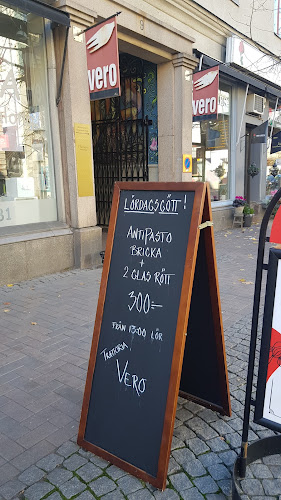 vero
vero
31
LÖRDAGSGÖTT!
ANTIPASTO
BRICKA
+
2 GLAS RÖTT
300:-
FRÅN 13:00 LÖR
TRATTORIA
VERO